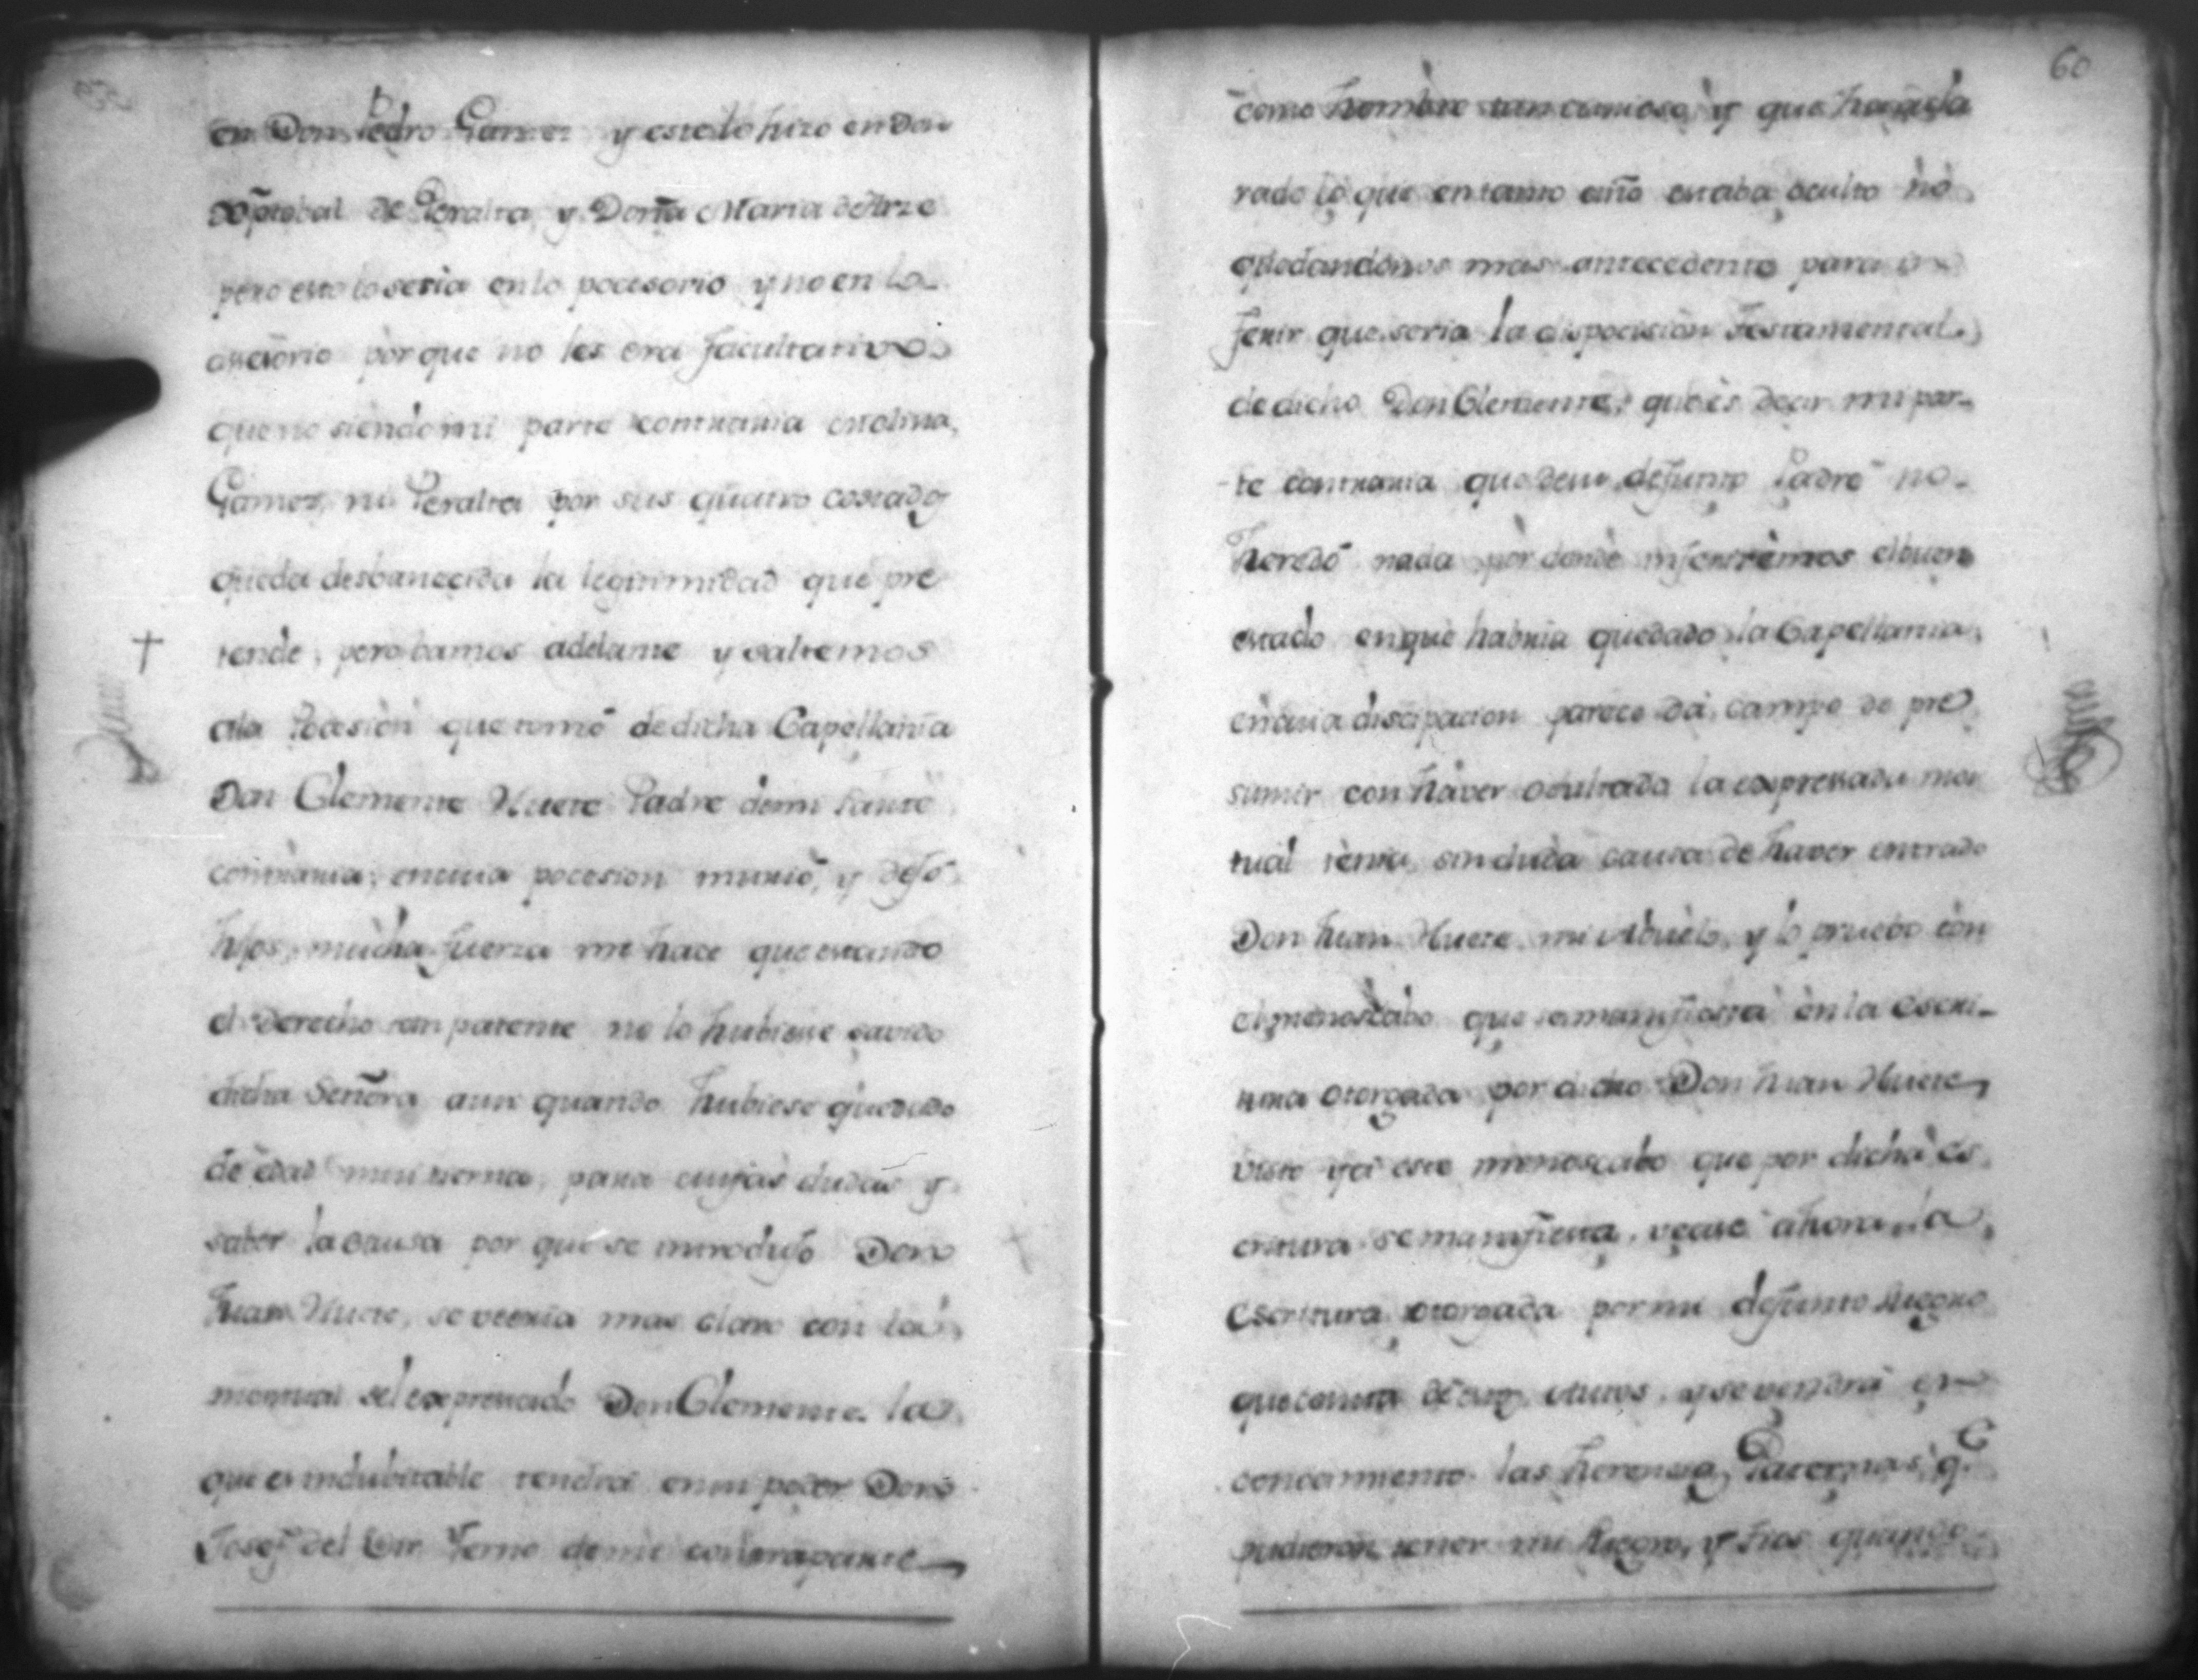 en Don Pedro Gamez y este lo hizo en Don
Xptobal de Peralta, y Doña Maria de Arze
pero esto lo seria en lo pocesorio y no en lo
porque no les era facultativo
que no siendo mi parte contraria Molina,
Gamez, ni Peralta por sus quatro costados
queda desbanecida la legitimidad que pre
tende, pero bamos adelante y saltemos
a la Pocesion que tomó de dicha Capellania
Don Clemente Huete Padre de mi Parte
contraria, en cuia pocesion murió, y dejó
hijos, mucha fuerza me hace que estando
el derecho tan patente no lo hubiese savido
dicha Señora aun quando hubiese quedado
de edad mui tierna, para cuyas dudas y
saber la causa por que se introdujo Don
Juan Huete, se veeria mas claro con la
mortual del expressado Don Clemente la
que es indubitable tendrá en su poder Don
Josef del Yerno de mi contraparte
60
como hombre tan curioso, y que
rado lo que en tanto año estaba oculto no
quedandonos mas antecedente para in
ferir que seria la dispocision Testamental
de dicho Don Clemente, que és decir mi par-
te contraria que de su defunto Padre no
heredó nada por donde inferirémos el buen
estado en que habria quedado la Capellania,
en cuia discipacion parece dá campo de pre
sumir con haver ocultado la expressada mor
tual sin duda causa de haver entrado
Don Juan Huete mi Abuelo, y lo pruebo con
el menoscabo que se manifiesta en la Escri-
tura otorgada por dicho Don Juan Huete,
visto ya este menoscabo que por dicha és
critura se manifiesta, vease ahora la
Escritura otorgada por mi defunto Suegro
que consta de y se vendrá en
conocimiento las herencias Paternas, q.e
pudieron tener mi Suegro, y Tios quando